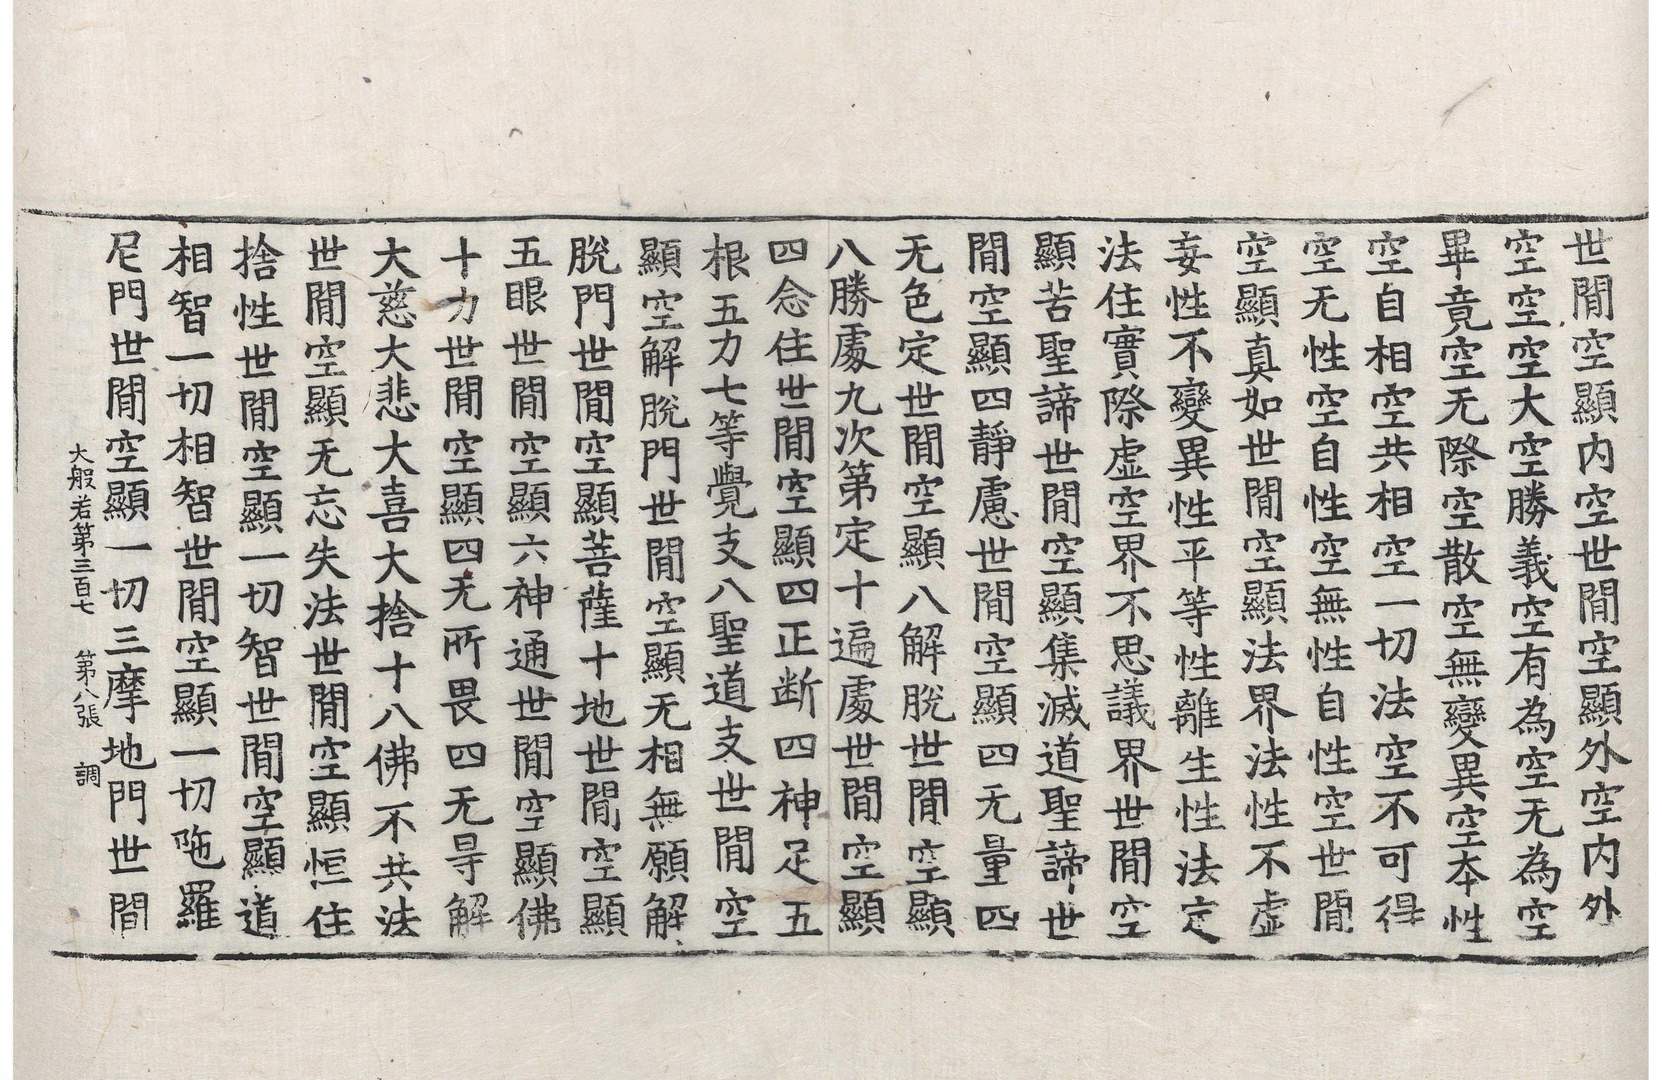 世閒空顯内空世閒空顯外空内外
空空空大空勝義空有為空无為空
畢竟空无際空散空無變異空本性
空自相空共相空一切法空不可得
空无性空自性空無性自性空世閒
空顯真如世閒空顯法界法性不虛
妄性不變異性平等性離生性法定
法住實際虛空界不思議界世閒空
顯苦聖諦世閒空顯集滅道聖諦世
閒空顯四靜慮世閒空顯四无量四
无色定世閒空顯八解脫世閒空顯
八勝處九次第定十遍處世閒空顯
四念住世閒空顯四正断四神足五
根五力七等覺支八聖道支世閒空
顯空解脫門世閒空顯无相無願解
脫門世閒空顯菩薩十地世閒空顯
五眼世閒空顯六神通世閒空顯佛
十力世閒空顯四无所畏四无㝵解
大慈大悲大喜大捨十八佛不共法
世閒空顯无忘失法世閒空顯恒住
捨性世閒空顯一切智世閒空顯道
相智一切相智世閒空顯一切陁羅
尼門世閒空顯一切三摩地門世閒
大般若第三百七 第八張 調